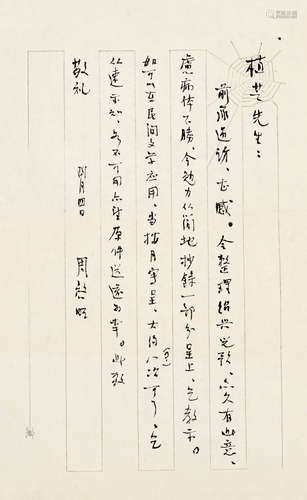 植芝先生：
前承过访，甚感。今整理绍兴儿歌，亦久有此意，
虑病体不胜，今勉力从简地抄录一部分呈上，乞教示。
如可以在民间文学应用，当按月写呈，大约八次可了，乞
从速示知，如不可用亦望原件送还为幸。此致
敬礼
月四日 周启明